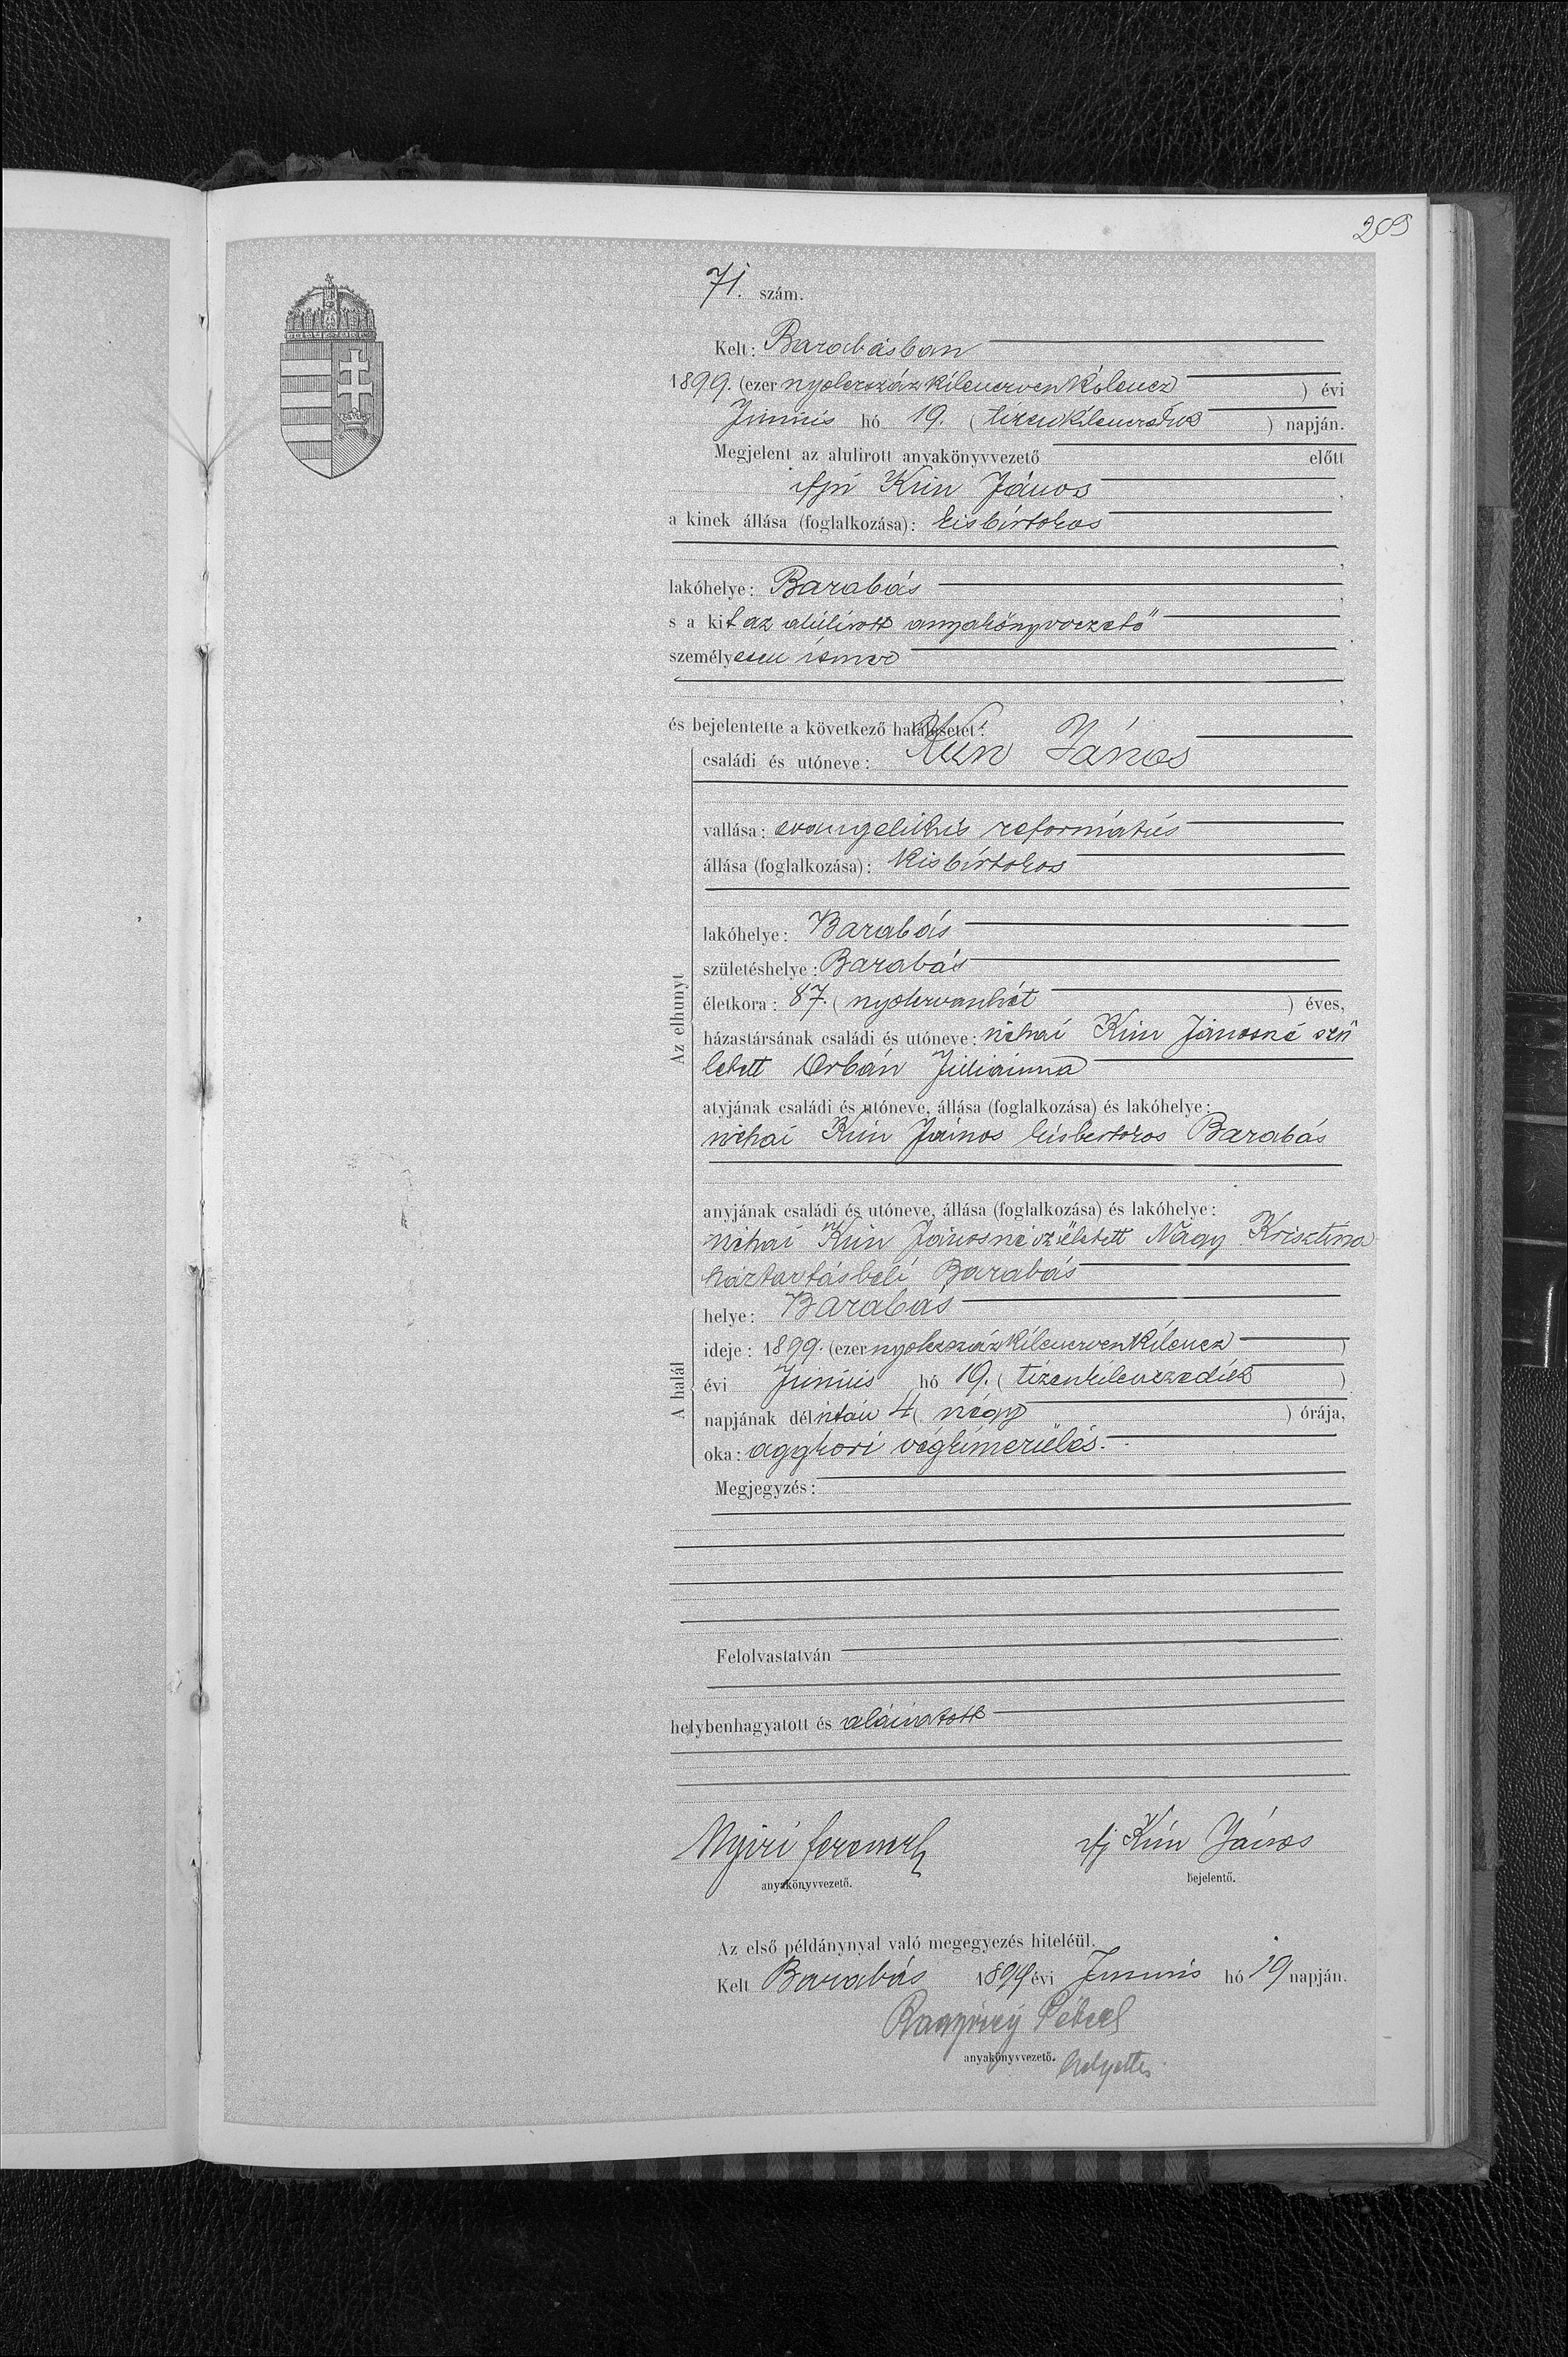 209
71. szám.
Kelt: Barabásban
1899. (ezer nyolczszáz kilenczven kilencz) évi
Junius hó 19. (tizenkilencz ) napján.
Megjelent az alulirott anyakönyvvezető előtt
ifjú Kun János
a kinek állása (foglalkozása): kisbirtokos
lakóhelye: Barabás
s a kit az alúlirott anyakönyvvezető
személyesen ismer
és bejelentette a következő halálesetet:
családi és utóneve: Kun János
vallása: evangelikus református
állása (foglalkozása): kisbirtokos
lakóhelye: Barabás
születéshelye: Barabás
Az elhunyt
életkora: 87. (nyolczvanhét) éves,
házastársának családi és utóneve: néhai Kun Jánosné szü
letett Orbán Juliánna
atyjának családi és utóneve, állása (foglalkozása) és lakóhelye:
néhai Kun János kisbirtokos Barabás
anyjának családi és utóneve, állása (foglalkozása) és lakóhelye:
néhai Kun Jánosné született Nagy Krisztina
háztartásbeli Barabás
helye: Barabás
ideje: 1899. (ezer nyolczszáz kilenczven kilencz)
A halál
évi Junius hó 19. (tizenkilenczedik)
napjának délután 4 (négy) órája,
oka: aggkori végkimerülés.
Megjegyzés:
Felolvastatván
helybenhagyatott és aláiratott
Nyiri Ferencz
ifj Kún János
anyakönyvvezető.
bejelentő.
Az első példánynyal való megegyezés hiteléül.
Kelt Barabás 1899 évi Junius hó 19 napján.
anyakönyvvezető. helyettes